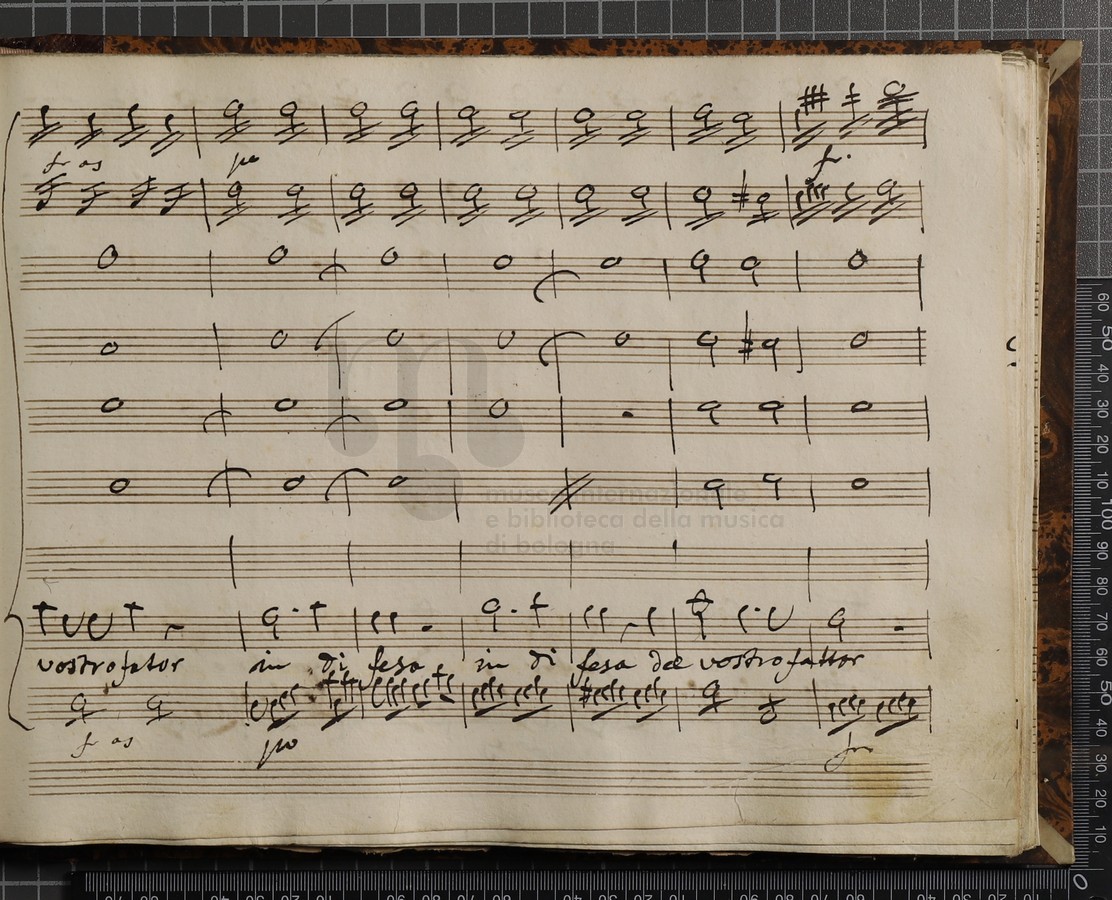 f as po f.
vostro fator in di fesa in di fesa del vostro fattor
f as po
museo internazionale
e biblioteca della musica
di bologna
60 50 40 30 20 10 100 90 80 70 60 50 40 30 20 10 0